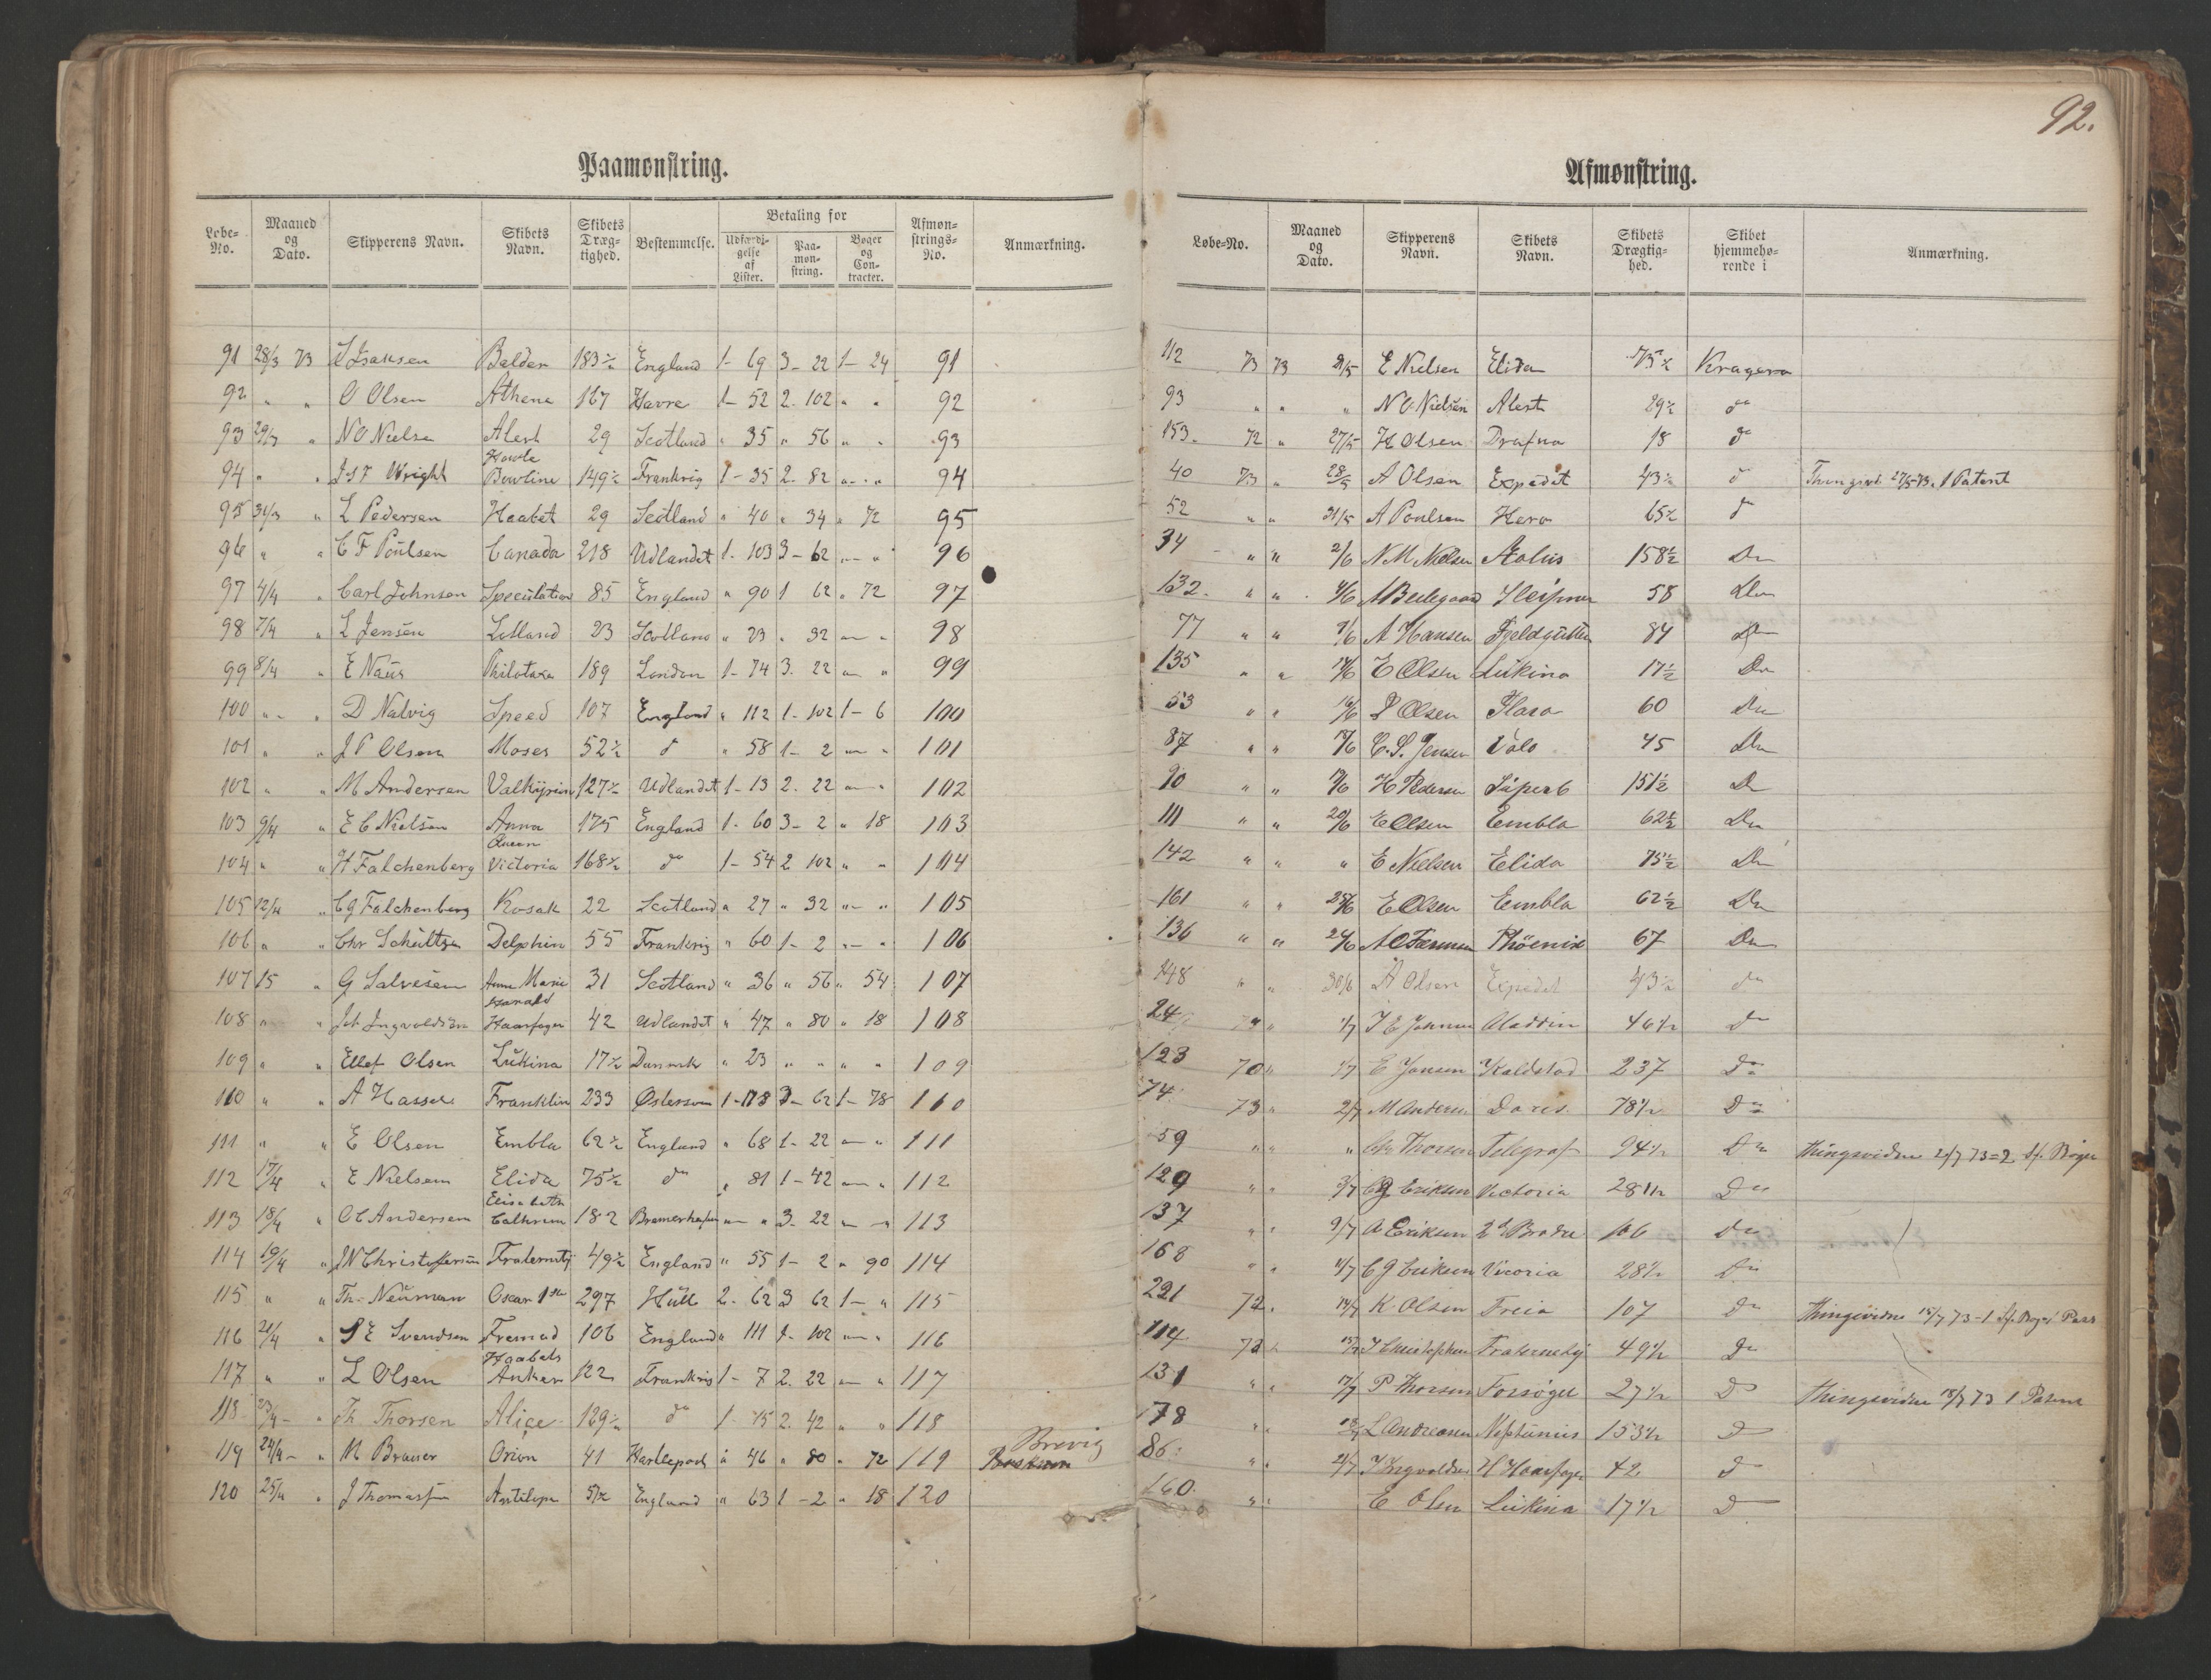 92.
Paamønstring.
Løbe-No. Maaned og Dato. Skipperens Navn. Skibets Navn. Skibets Dræg-tighed. Bestemmelse. Betaling for Udfærdi-gelse af Lister. Paa-møn-string. Bøger og Con-tracter. Afmøn-strings-No. Anmærkning.
91 28/3 73 Isaksen Balder 183½ England 1- 69 3- 22 1- 24 91
92 " " O Olsen Athene 167 Havre 1- 52 2. 102 " " 92
93 29/3 " N O Nielse Alert 29 Scotland " 35 " 56 " " 93
94 " " Wright Howle Bowline 149½ Frankrig 1- 35 2. 82 " " 94
95 31/3 " L Pedersen Haabet 29 Scotland " 40 " 34 " 72 95
96 " " C F Poulsen Canada 218 Udlandet 1- 103 3- 62 " " 96
97 4/4 " Carl Johnsen Speculation 85 England " 90 1 62 " 72 97
98 7/4 " L Jensen Lolland 23 Scotland " 23 " 32 " " 98
99 8/4 " E Naus Philotaxe 189 London 1- 74 3. 22 " " 99
100 " " D Nalvig Speed 107 England " 112 1- 102 1- 6 100
101 " " J P Olsen Moses 52½ do " 58 1- 2 " " 101
102 " " M Andersen Valkyrien 127½ Udlandet 1- 13 2. 22 " " 102
103 9/4 " E C Nielsen Anna 175 England 1- 60 3- 2 " 18 103
104 " " H Falchenberg Queen Victoria 168½ do 1- 54 2 102 " " 104
105 12/4 " C G Falchenberg Kosak 22 Scotland " 27 " 32 " " 105
106 " " Chr Schultze Delphin 55 Frankrig " 60 1- 2 " " 106
107 15 " G Salvesen Anne Marie 31 Scotland " 36 " 56 " 54 107
108 " " Joh Ingvoldsen Harald Haarfager 42 Udlandet " 47 " 80 " 18 108
109 " " Ellef Olsen Lukina 17½ Danmark " 23 " " " " 109
110 " " A Hassel Franklin 233 Østersøen 1- 118 3- 62 1- 78 110
111 " " E Olsen Embla 62½ England " 68 1- 22 " " 111
112 17/4 " E Nielsen Elida 75½ do " 81 1- 42 " " 112
113 18/4 " O C Andersen Elisabeth 182 Bremerhafen " " 3- 22 " " 113
114 19/4 " Christoffersen Fraternity 49½ England " 55 1- 2 " 90 114
115 " " Th. Neuman Oscar 1ste 297 Hull 2- 62 3 62 1- " 115
116 21/4 " S E Svendsen Fremad 106 England " 111 1- 102 " " 116
117 " " L Olsen Haabets Anker 122 Frankrig 1- 7 2. 22 " " 117
118 23/4 " Th Thorsen Alice 129½ do 1- 15 2. 42 " " 118
119 24/4 " M Brauer Orion 41 Hartlepool " 46 " 80 " 72 119 Brevig
120 25/4 " J Thomassen Antilope 57½ England " 63 1- 2 " 18 120
Afmønstring.
Løbe-No. Maaned og Dato. Skipperens Navn. Skibets Navn. Skibets Drægtig-hed. Skibet hjemmehø-rende i Anmærkning.
112 73 73 21/5 E Nielsen Elida 75½ Kragerø
93 " " " N O Nielsen Alert 29½ do
153. 72 " 27/5 H Olsen Drafna 18 do
40 73 " 28/5 A Olsen Expedit 43½ do 27/5 73. 1 Patent
52 " " 31/5 A Poulsen Hera 65½ do
34 " " 2/6 N M Nielsen Æolus 158½ Do
132. " " 4/6 Sleipner 58 Do
77 " " 7/6 A Hansen Fjeldgutten 84 Do
135 " " 14/6 E Olsen Lukina 17½ Do
53 " " 16/6 Olsen Flora 60 Do
87 " " C. S. Jensen Valo 45 Do
90 " " H Pedersen Superb 151½ Do
111 " " 20/6 E Olsen Embla 62½ Do
142 " " " E Nielsen Elida 75½ Do
161 " " E Olsen Embla 62½ Do
136 " " Phöenix 67 Do
148 " " 30/6 A Olsen Expedit 43½ do
24 " 1/7 Aladdin 46½ do
123 70 " 1/7 E Jansen Kaldstad 237 Do
74. 73 " 2/7 M Andersen Doris 78½ Do
59 " " " Chr Thorsen Telegraf 94½ Do Thingsvidne 2/7 73 = 2 Sf. Bøger
129 " " 3/7 C G Eriksen Victoria 28½ Do
137 " " 9/7 A Eriksen 2de Brødre 106 Do
168 " " 11/7 C G Eriksen Vicoria 28½ Do
221 72. 14/7 K Olsen Freia 107 Do Thingsvidne 15/7 73 - 1 Sf. Bog & Pass
114. 73 " 15/7 Christophersen Fraternety 49½ Do
131 " " 17/7 P Thorsen Forsøget 27½ Do Thingsvidne 18/7 73 1 Patent
178 " " 18/7 L Andreasen Neptunus 153½ Do
86. " " 21/7 J Ingvoldsen H Haarfager 42 do
160. " " E Olsen Lukina 17½ Do